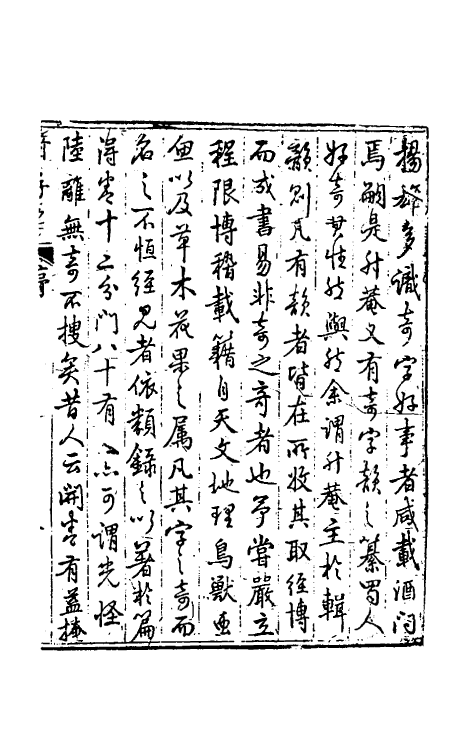 揚雄多識奇字好事者咸載酒问
焉嗣是升菴又有奇字韻之纂蜀人
好奇其性然歟然余谓升菴主於輯
韻则凡有韻者皆在所收其取径博
而成書易非奇之奇者也予嘗嚴立
程限博稽載籍自天文地理鳥獸虫
魚以及草木花果之属凡其字之奇而
名之不恒经见者依類錄之以著於篇
得卷十二分门八十有八亦可谓光怪
陸離無奇不搜矣昔人云開卷有益掩
序